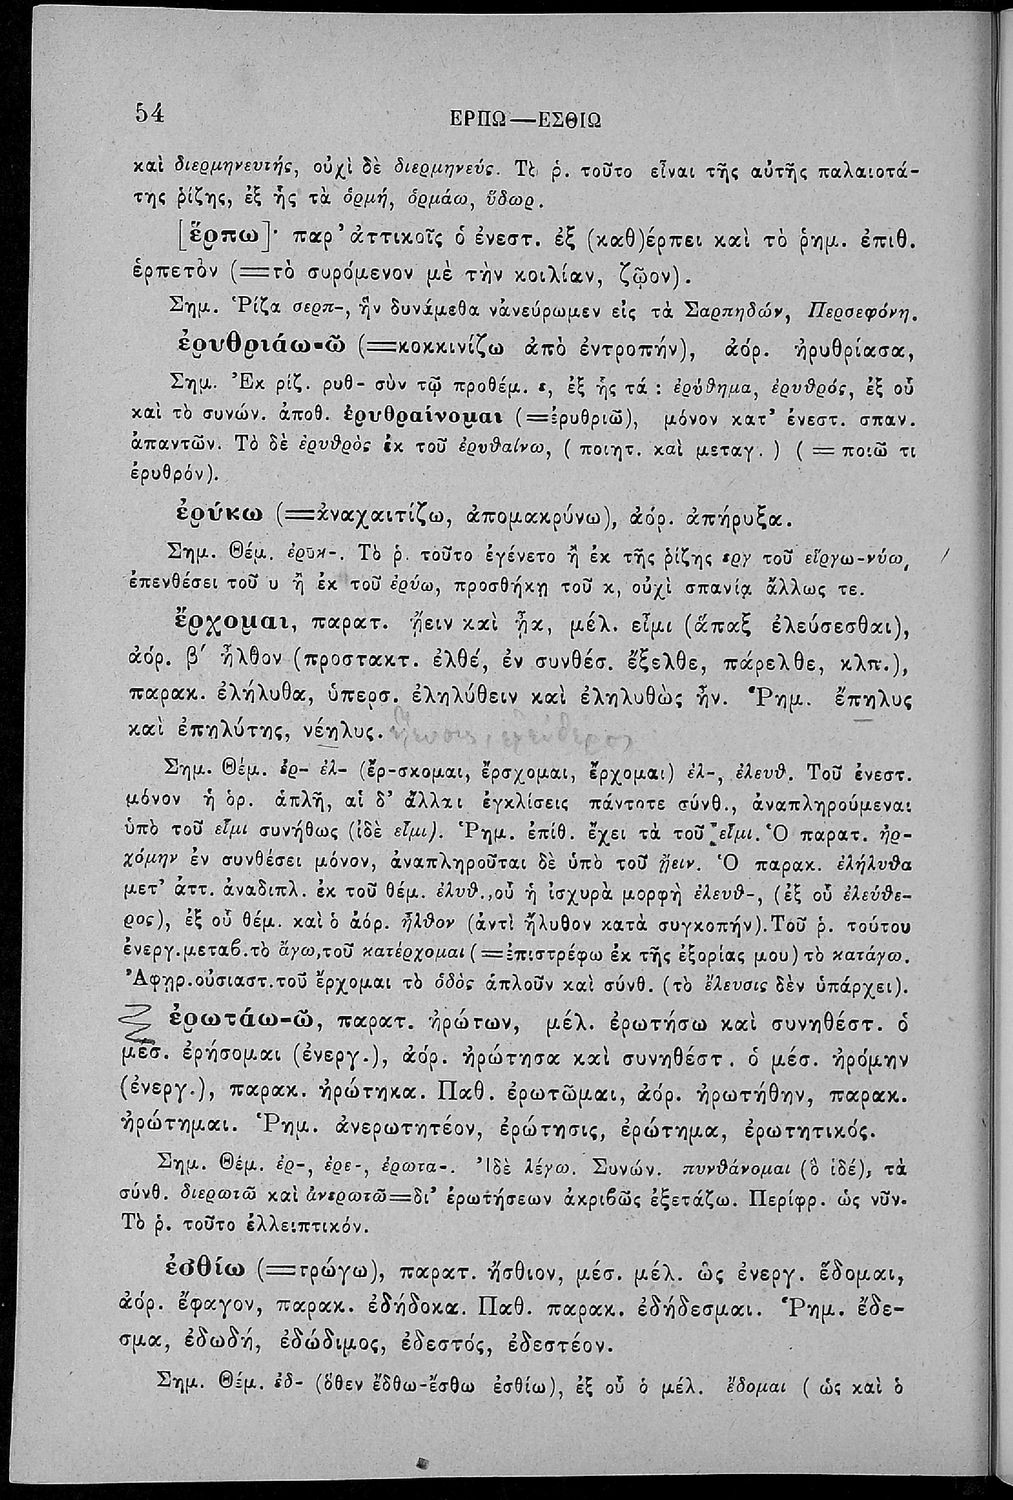 54
ΕΡΠΩ—ΕΣΘΙΩ
καὶ διερμηνευτής, οὐχὶ δὲ διερμηνεύς. Τὸ ῥ. τοῦτο εἶναι τῆς αὐτῆς παλαιοτά-
της ῥίζης, ἐξ ἧς τὰ ὁρμή, ὁρμάω, ὕδωρ.
[ἕρπω]· παρ' ἀττικοῖς ὁ ἐνεστ. ἐξ (καθ)έρπει καὶ τὸ ῥημ. ἐπιθ.
ἑρπετὸν (=τὸ συρόμενον μὲ τὴν κοιλίαν, ζῷον).
Σημ. Ῥίζα σερπ-, ἣν δυνάμεθα νἀνεύρωμεν εἰς τὰ Σαρπηδών, Περσεφόνη.
ἐρυθριάω-ῶ (=κοκκινίζω ἀπὸ ἐντροπήν), ἀόρ. ἠρυθρίασα,
Σημ. Ἐκ ρίζ. ρυθ- σὺν τῷ προθέμ. ε, ἐξ ἧς τά : ἐρύθημα, ἐρυθρός, ἐξ οὗ
καὶ τὸ συνών. ἀποθ. ἐρυθραίνομαι (=ἐρυθριῶ), μόνον κατ' ἐνεστ. σπαν.
ἀπαντῶν. Τὸ δὲ ἐρυθρὸς ἐκ τοῦ ἐρυθαίνω, ( ποιητ. καὶ μεταγ. ) ( = ποιῶ τι
ἐρυθρόν).
ἐρύκω (=ἀναχαιτίζω, ἀπομακρύνω), ἀόρ. ἀπήρυξα.
Σημ. Θέμ. ἐρυκ-. Τὸ ῥ. τοῦτο ἐγένετο ἢ ἐκ τῆς ῥίζης εργ τοῦ εἴργω-νύω,
ἐπενθέσει τοῦ υ ἢ ἐκ τοῦ ἐρύω, προσθήκῃ τοῦ κ, οὐχὶ σπανίᾳ ἄλλως τε.
ἔρχομαι, παρατ. ᾔειν καὶ ᾖα, μέλ. εἶμι (ἅπαξ ἐλεύσεσθαι),
ἀόρ. β′ ἦλθον (προστακτ. ἐλθέ, ἐν συνθέσ. ἔξελθε, πάρελθε, κλπ.),
παρακ. ἐλήλυθα, ὑπερσ. ἐληλύθειν καὶ ἐληλυθὼς ἦν. Ῥημ. ἔπηλυς
καὶ ἐπηλύτης, νέηλυς.
Σημ. Θέμ. ἐρ- ἐλ- (ἔρ-σκομαι, ἔρσχομαι, ἔρχομαι) ἐλ-, ἐλευθ. Τοῦ ἐνεστ.
μόνον ἡ ὁρ. ἁπλῆ, αἱ δ' ἄλλαι ἐγκλίσεις πάντοτε σύνθ., ἀναπληρούμεναι
ὑπὸ τοῦ εἶμι συνήθως (ἰδὲ εἶμι). Ῥημ. ἐπίθ. ἔχει τὰ τοῦ εἶμι. Ὁ παρατ. ἠρ-
χόμην ἐν συνθέσει μόνον, ἀναπληροῦται δὲ ὑπὸ τοῦ ᾔειν. Ὁ παρακ. ἐλήλυθα
μετ' ἀττ. ἀναδιπλ. ἐκ τοῦ θέμ. ἐλυθ., οὗ ἡ ἰσχυρὰ μορφὴ ἐλευθ-, (ἐξ οὗ ἐλεύθε-
ρος), ἐξ οὗ θέμ. καὶ ὁ ἀόρ. ἦλθον (ἀντὶ ἤλυθον κατὰ συγκοπήν). Τοῦ ῥ. τούτου
ἐνεργ. μεταβ. τὸ ἄγω, τοῦ κατέρχομαι (=ἐπιστρέφω ἐκ τῆς ἐξορίας μου) τὸ κατάγω.
Ἀφῃρ. οὐσιαστ. τοῦ ἔρχομαι τὸ ὁδὸς ἁπλοῦν καὶ σύνθ. (τὸ ἔλευσις δὲν ὑπάρχει).
ἐρωτάω-ῶ, παρατ. ἠρώτων, μέλ. ἐρωτήσω καὶ συνηθέστ. ὁ
μέσ. ἐρήσομαι (ἐνεργ.), ἀόρ. ἠρώτησα καὶ συνηθέστ. ὁ μέσ. ἠρόμην
(ἐνεργ.), παρακ. ἠρώτηκα. Παθ. ἐρωτῶμαι, ἀόρ. ἠρωτήθην, παρακ.
ἠρώτημαι. Ῥημ. ἀνερωτητέον, ἐρώτησις, ἐρώτημα, ἐρωτητικός.
Σημ. Θέμ. ἐρ-, ἐρε-, ἐρωτα-. Ἰδὲ λέγω. Συνών. πυνθάνομαι (ὃ ἰδέ), τὰ
σύνθ. διερωτῶ καὶ ἀνερωτῶ=δι' ἐρωτήσεων ἀκριβῶς ἐξετάζω. Περίφρ. ὡς νῦν.
Τὸ ῥ. τοῦτο ἐλλειπτικόν.
ἐσθίω (=τρώγω), παρατ. ἤσθιον, μέσ. μέλ. ὡς ἐνεργ. ἔδομαι,
ἀόρ. ἔφαγον, παρακ. ἐδήδοκα. Παθ. παρακ. ἐδήδεσμαι. Ῥημ. ἔδε-
σμα, ἐδωδή, ἐδώδιμος, ἐδεστός, ἐδεστέον.
Σημ. Θέμ. ἐδ- (ὅθεν ἔδθω-ἔσθω ἐσθίω), ἐξ οὗ ὁ μέλ. ἔδομαι ( ὡς καὶ ὁ